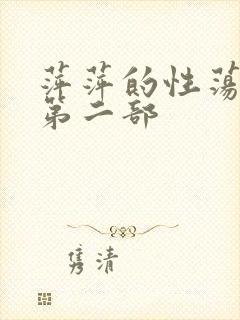 萍萍的性荡
第二部
隽清